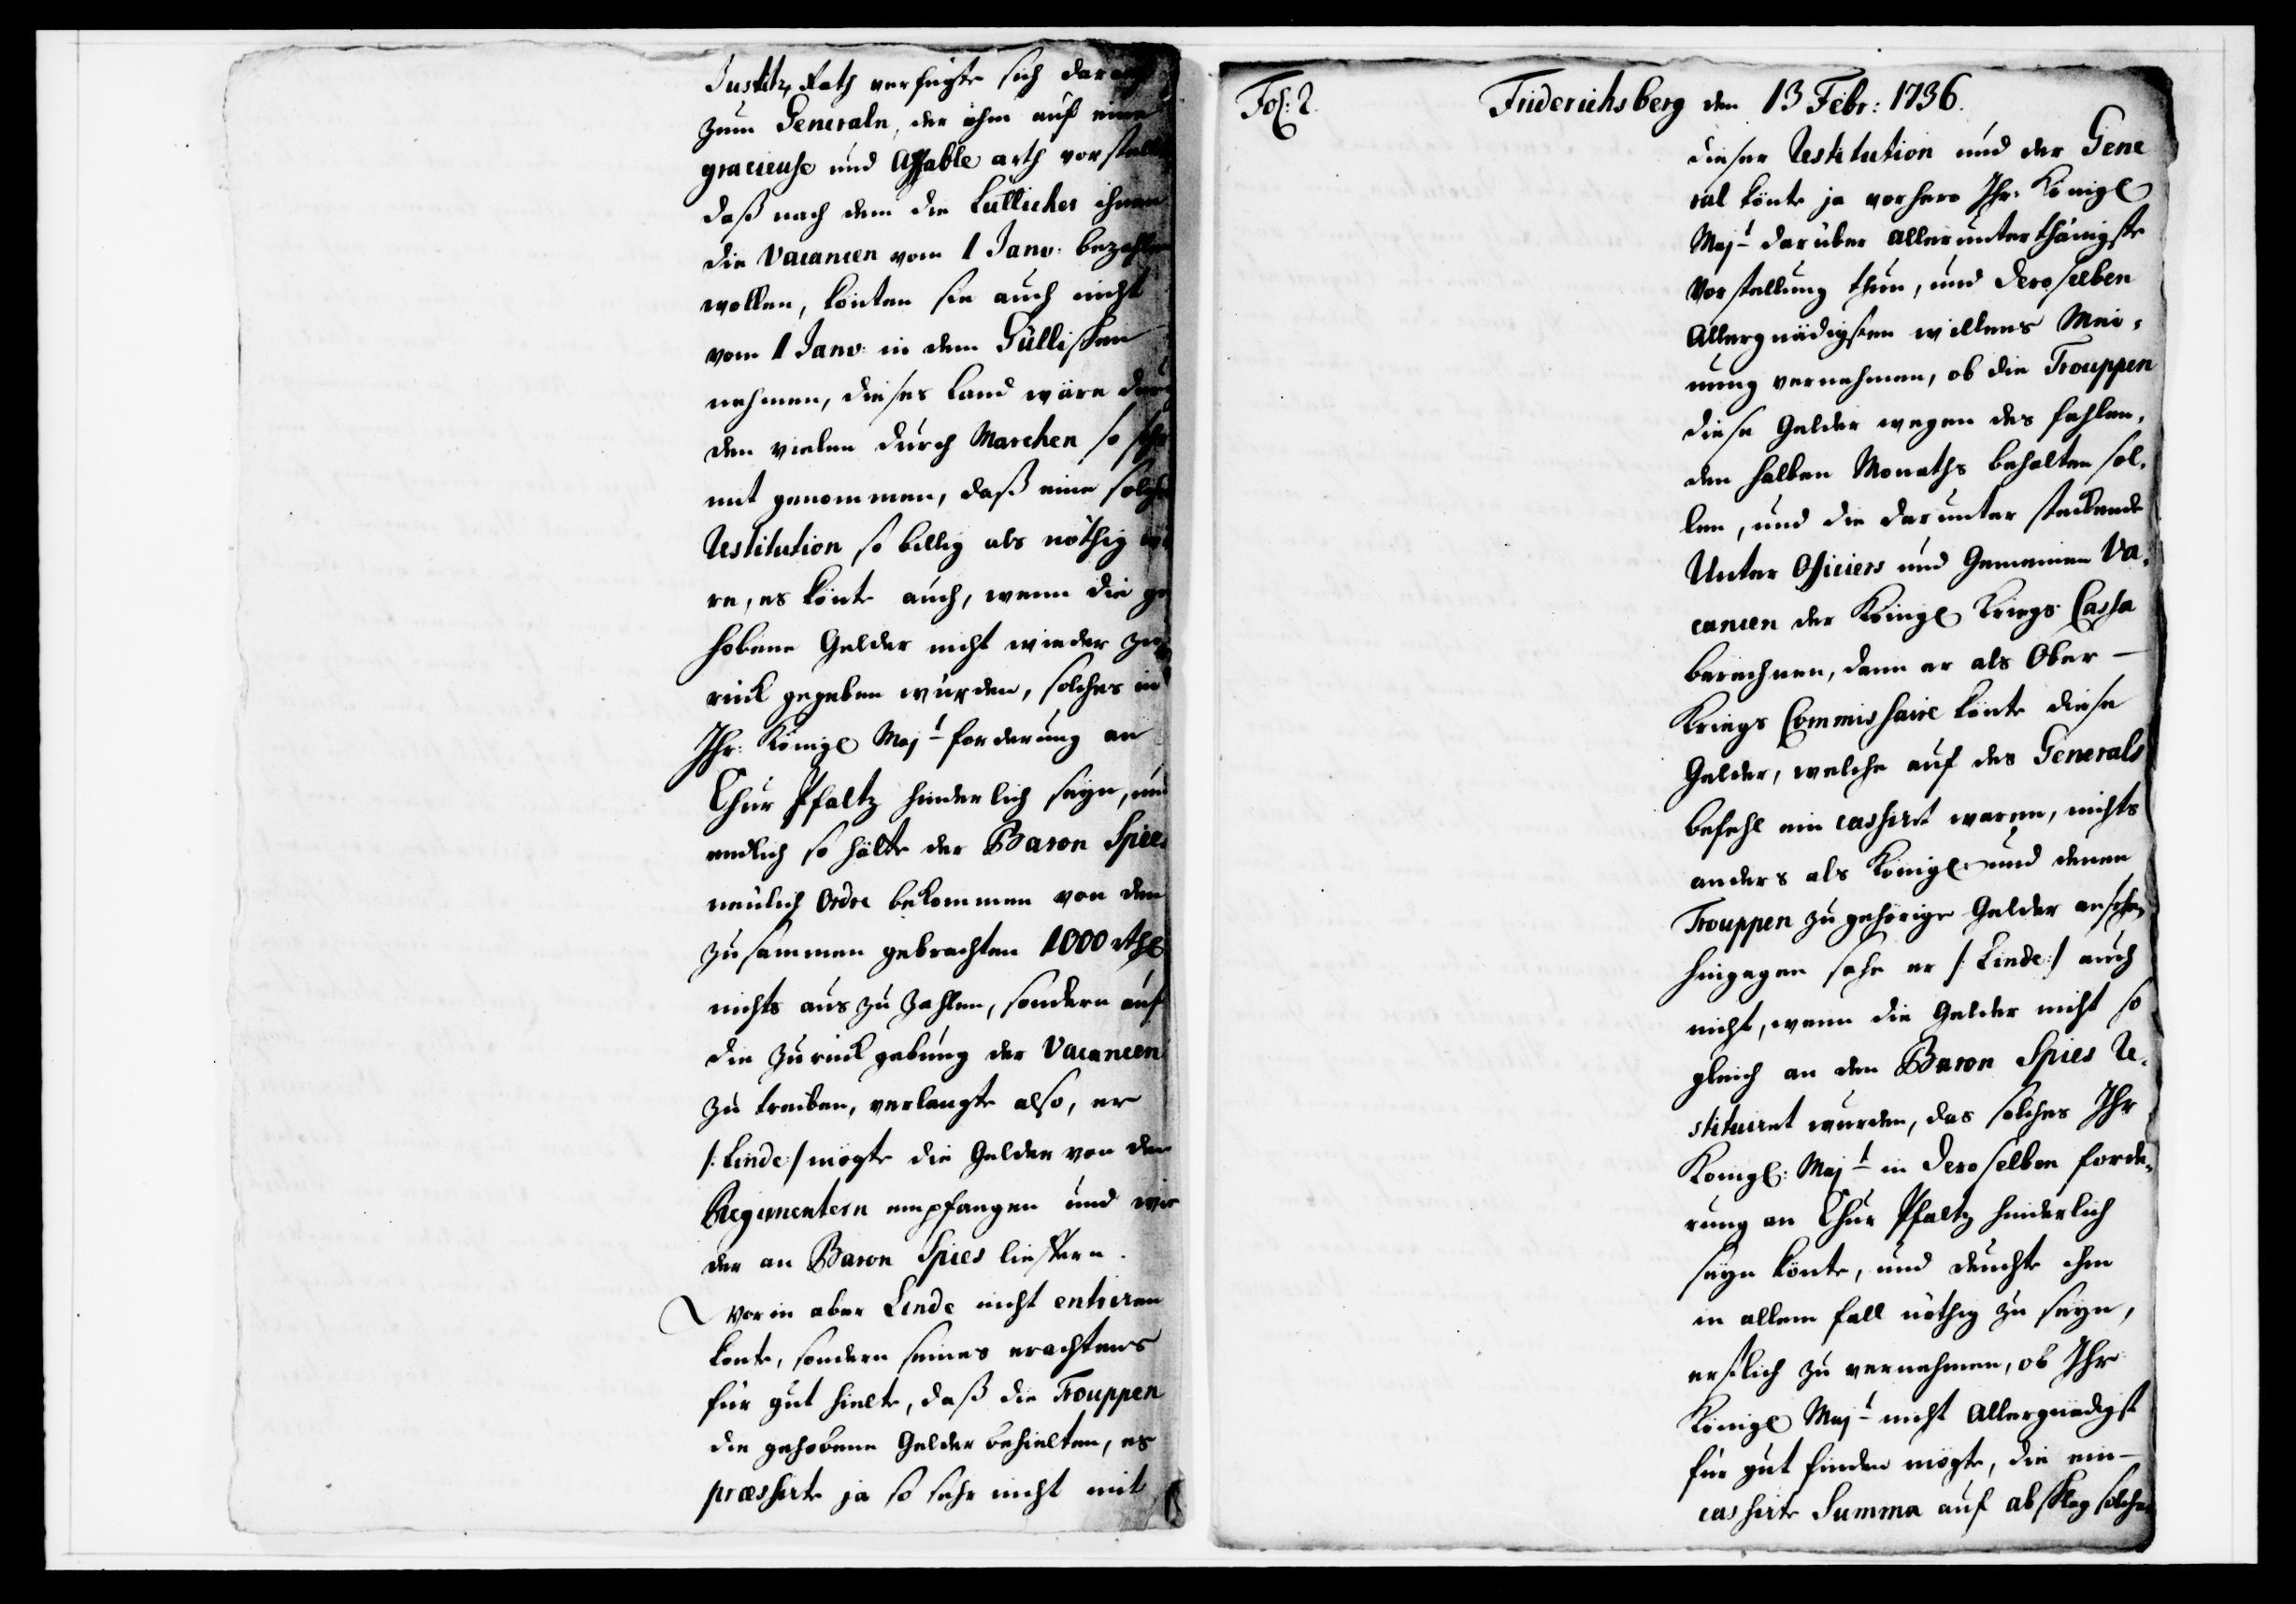 Justitz Rath verfügte sich darauf
zum Generaln, der ihm auf eine
gracieuse und Affable arth vorstellte
daß nach dem die Lütticher ihnen
die Vacancen vom 1 Janv: bezahlen
wollen, könten sie auch nicht
vom 1 Janv: in dem Güllischen
nehmen, dieses Land wäre durch
den vielen durch Marchen so sehr
mit genommen, daß eine solche
Restitution so billig als nöthig wä
re, es könte auch, wenn die ge
hobene Gelder nicht wieder zu
rück gegeben würden, solches in
Ihr: Königl Majt forderung an
Chur Pfaltz hinderlich seyn, und
endlich so hätte der Baron Spies
neulich Ordre bekommen von den
zusammen gebrachten 1000 rthl
nichts aus zu zahlen, sondern auf
die zurückgebung der Vacancen
zu treiben, verlangte also, er
/: Linde :/ mögte die Gelder von den
Regimentern empfangen und wie
der an Baron Spies lieffern.
Worin aber Linde nicht entriren
konte, sondern seines erachtens
für gut hielte, daß die Trouppen
die gehobene Gelder behielten, es
pressirte ja so sehr nicht mit
Fol: 2.
Friderichsberg den 13 Febr: 1736.
dieser Restitution und der Gene
ral könte ja vorhero Ihr: Königl
Majt darüber allerunterthänigste
Vorstellung thun, und deroselben
Allergnädigsten willens Mei-
nung vernehmen, ob die Trouppen
diese Gelder wegen des fehlen-
den halben Monaths behalten sol-
len, und die darunter steckende
Unter Officiers und Gemeinen Va-
cancen der Königl Kriegs Cassa
berechnen, denn er als Ober-
Kriegs Commissaire könte diese
Gelder, welche auf des Generals
befehl ein cassirt waren, nichts
anders als Königl: und denen
Trouppen zugehörige Gelder ansehen
hingegen sehe er /: Linde :/ auch
nicht, wenn die Gelder nicht so
gleich an den Baron Spies Re-
stituiret wurden, das solches Ihr
Königl: Majt in deroselben forde-
rung an Chur Pfaltz hinderlich
seyn könte, und deuchte ihm
in allem fall nöthig zu seyn,
erstlich zu vernehmen, ob Ihr
Königl Majt nicht Allergnädigst
für gut finden mögte, die ein-
cassirte Summa auf abschlag solcher